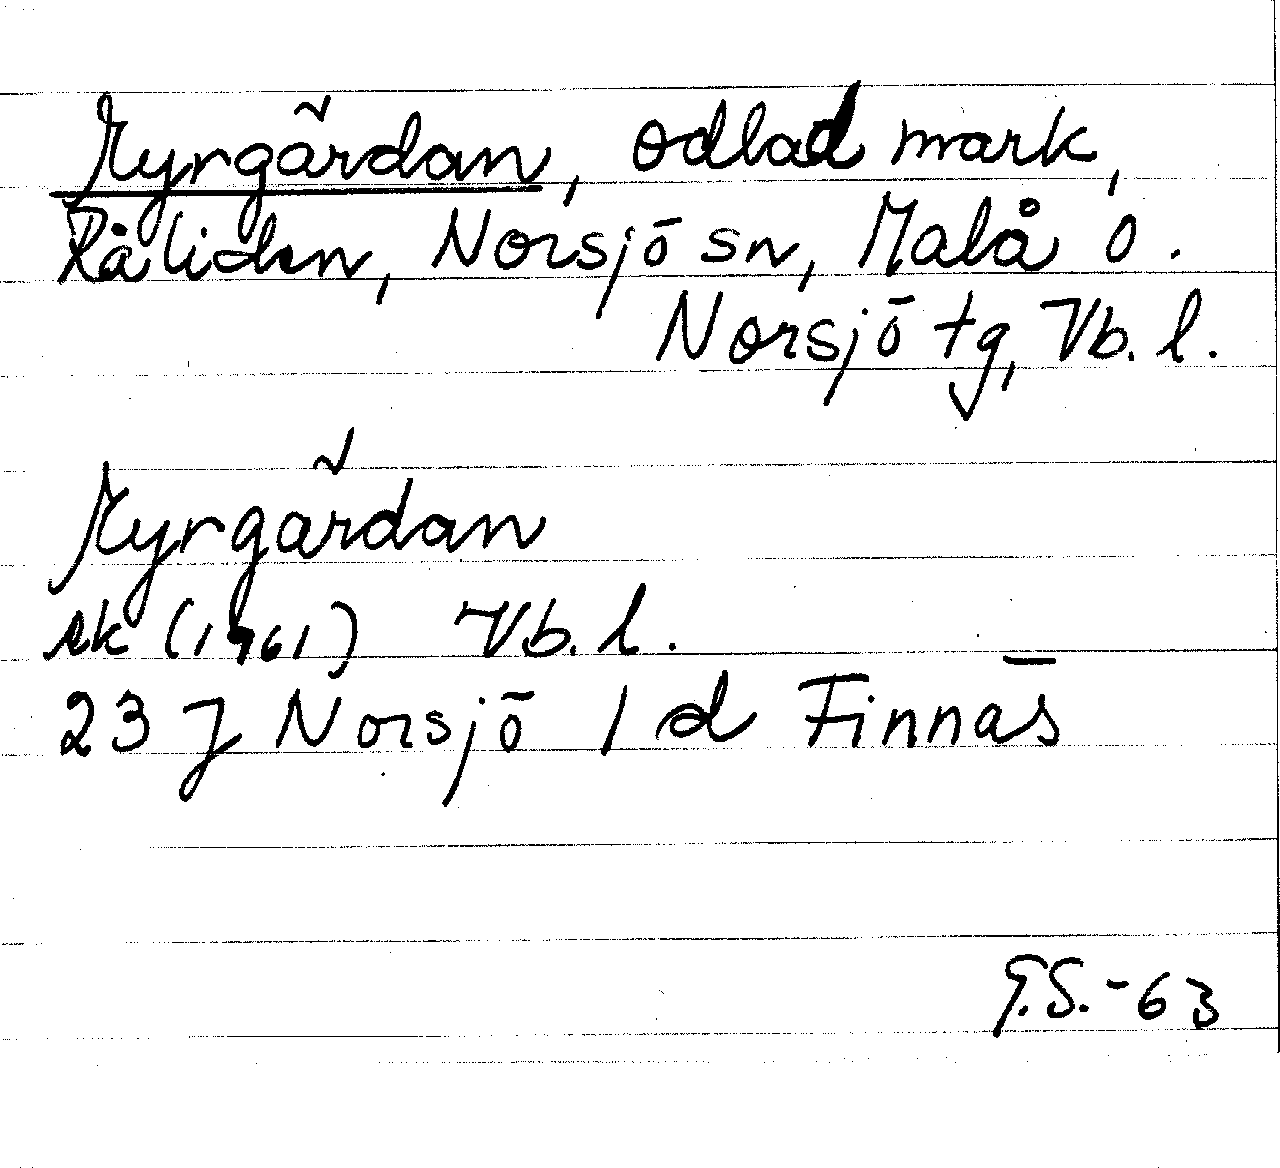 Myrgärdan, odlad mark,
Råliden, Norsjö sn, Malå o.
Norsjö tg, Vb. l.
Myrgärdan
ek (1961) Vb. l.
23 J Norsjö 1 d Finnäs
G.S.-63